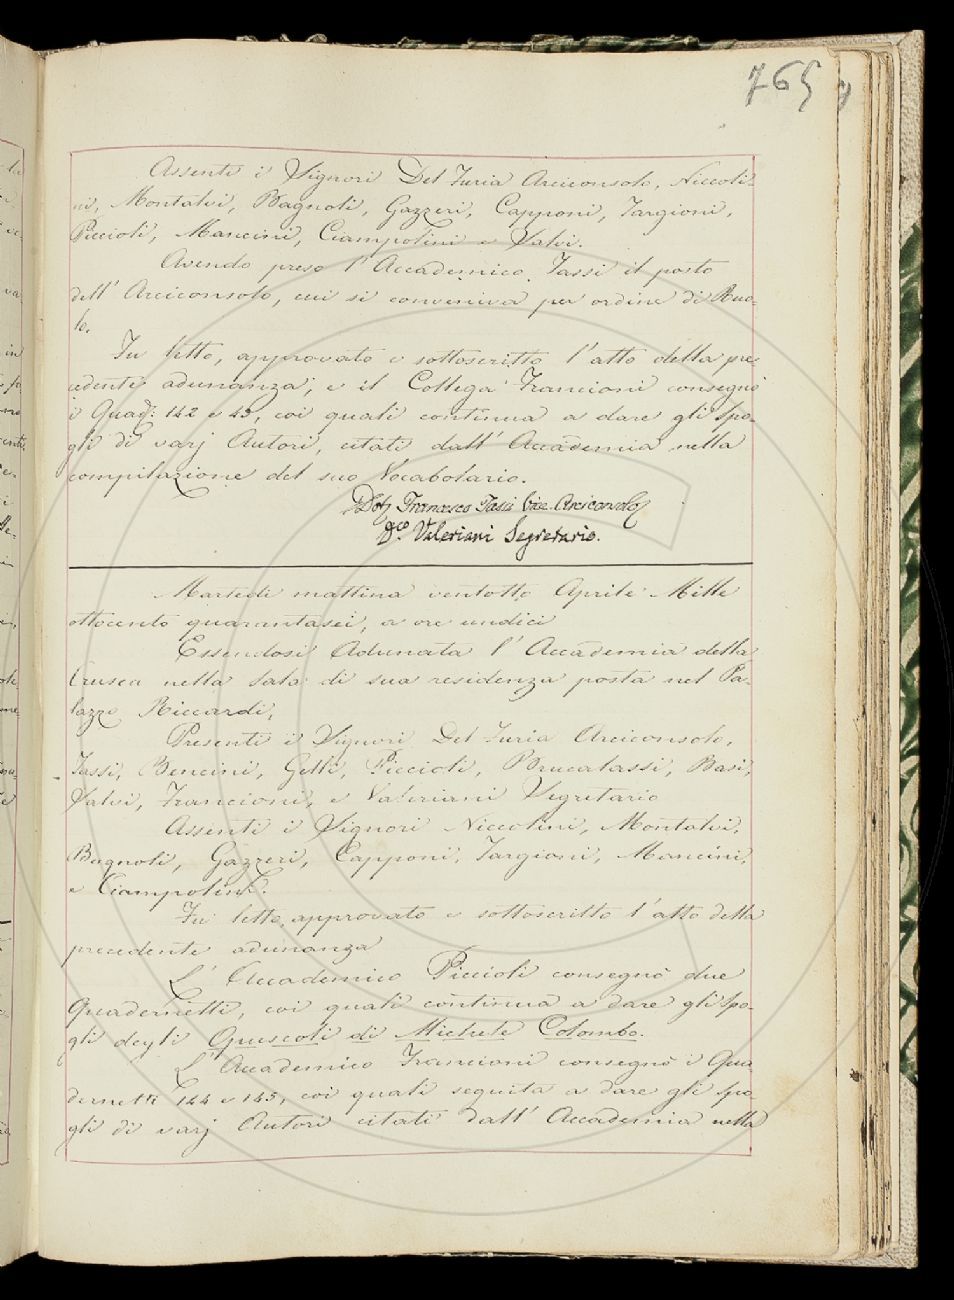 765
Assenti i Signori Del Furia Arciconsolo, Niccoli-
ni, Montalvi, Bagnoli, Gazzeri, Capponi, Targioni,
Piccioli, Mancini, Ciampolini e Salvi.
Avendo preso l'Accademico Tassi il posto
dell'Arciconsolo, cui si conveniva per ordine di Ruo-
lo.
Fu letto, approvato e sottoscritto l'atto della pre-
cedente adunanza; e il Collega Francioni consegnò
i Quad: 142 e 43, coi quali continua a dare gli spo-
gli di varj Autori, citati dall'Accademia nella
compilazione del suo Vocabolario.
Dott Francesco Tassi Vice Arciconsolo
Dco. Valeriani Segretario.
Martedì mattina ventotto Aprile Mille
ottocento quarantasei, a ore undici
Essendosi Adunata l'Accademia della
Crusca nella sala di sua residenza posta nel Pa-
lazzo Riccardi,
Presenti i Signori Del Furia Arciconsolo,
Tassi, Bencini, Gelli, Piccioli, Brucalassi, Basi,
Salvi, Francioni, e Valeriani Segretario
Assenti i Signori Niccolini, Montalvi,
Bagnoli, Gazzeri, Capponi, Targioni, Mancini,
e Ciampolini.
Fu letto, approvato e sottoscritto l'atto della
precedente adunanza
L'Accademico Piccioli consegnò due
Quadernetti, coi quali continua a dare gli spo-
gli degli Opuscoli di Michele Colombo.
L'Accademico Francioni consegnò i Qua
dernetti 144 e 145, coi quali seguita a dare gli spo-
gli di varj Autori citati dall'Accademia nella